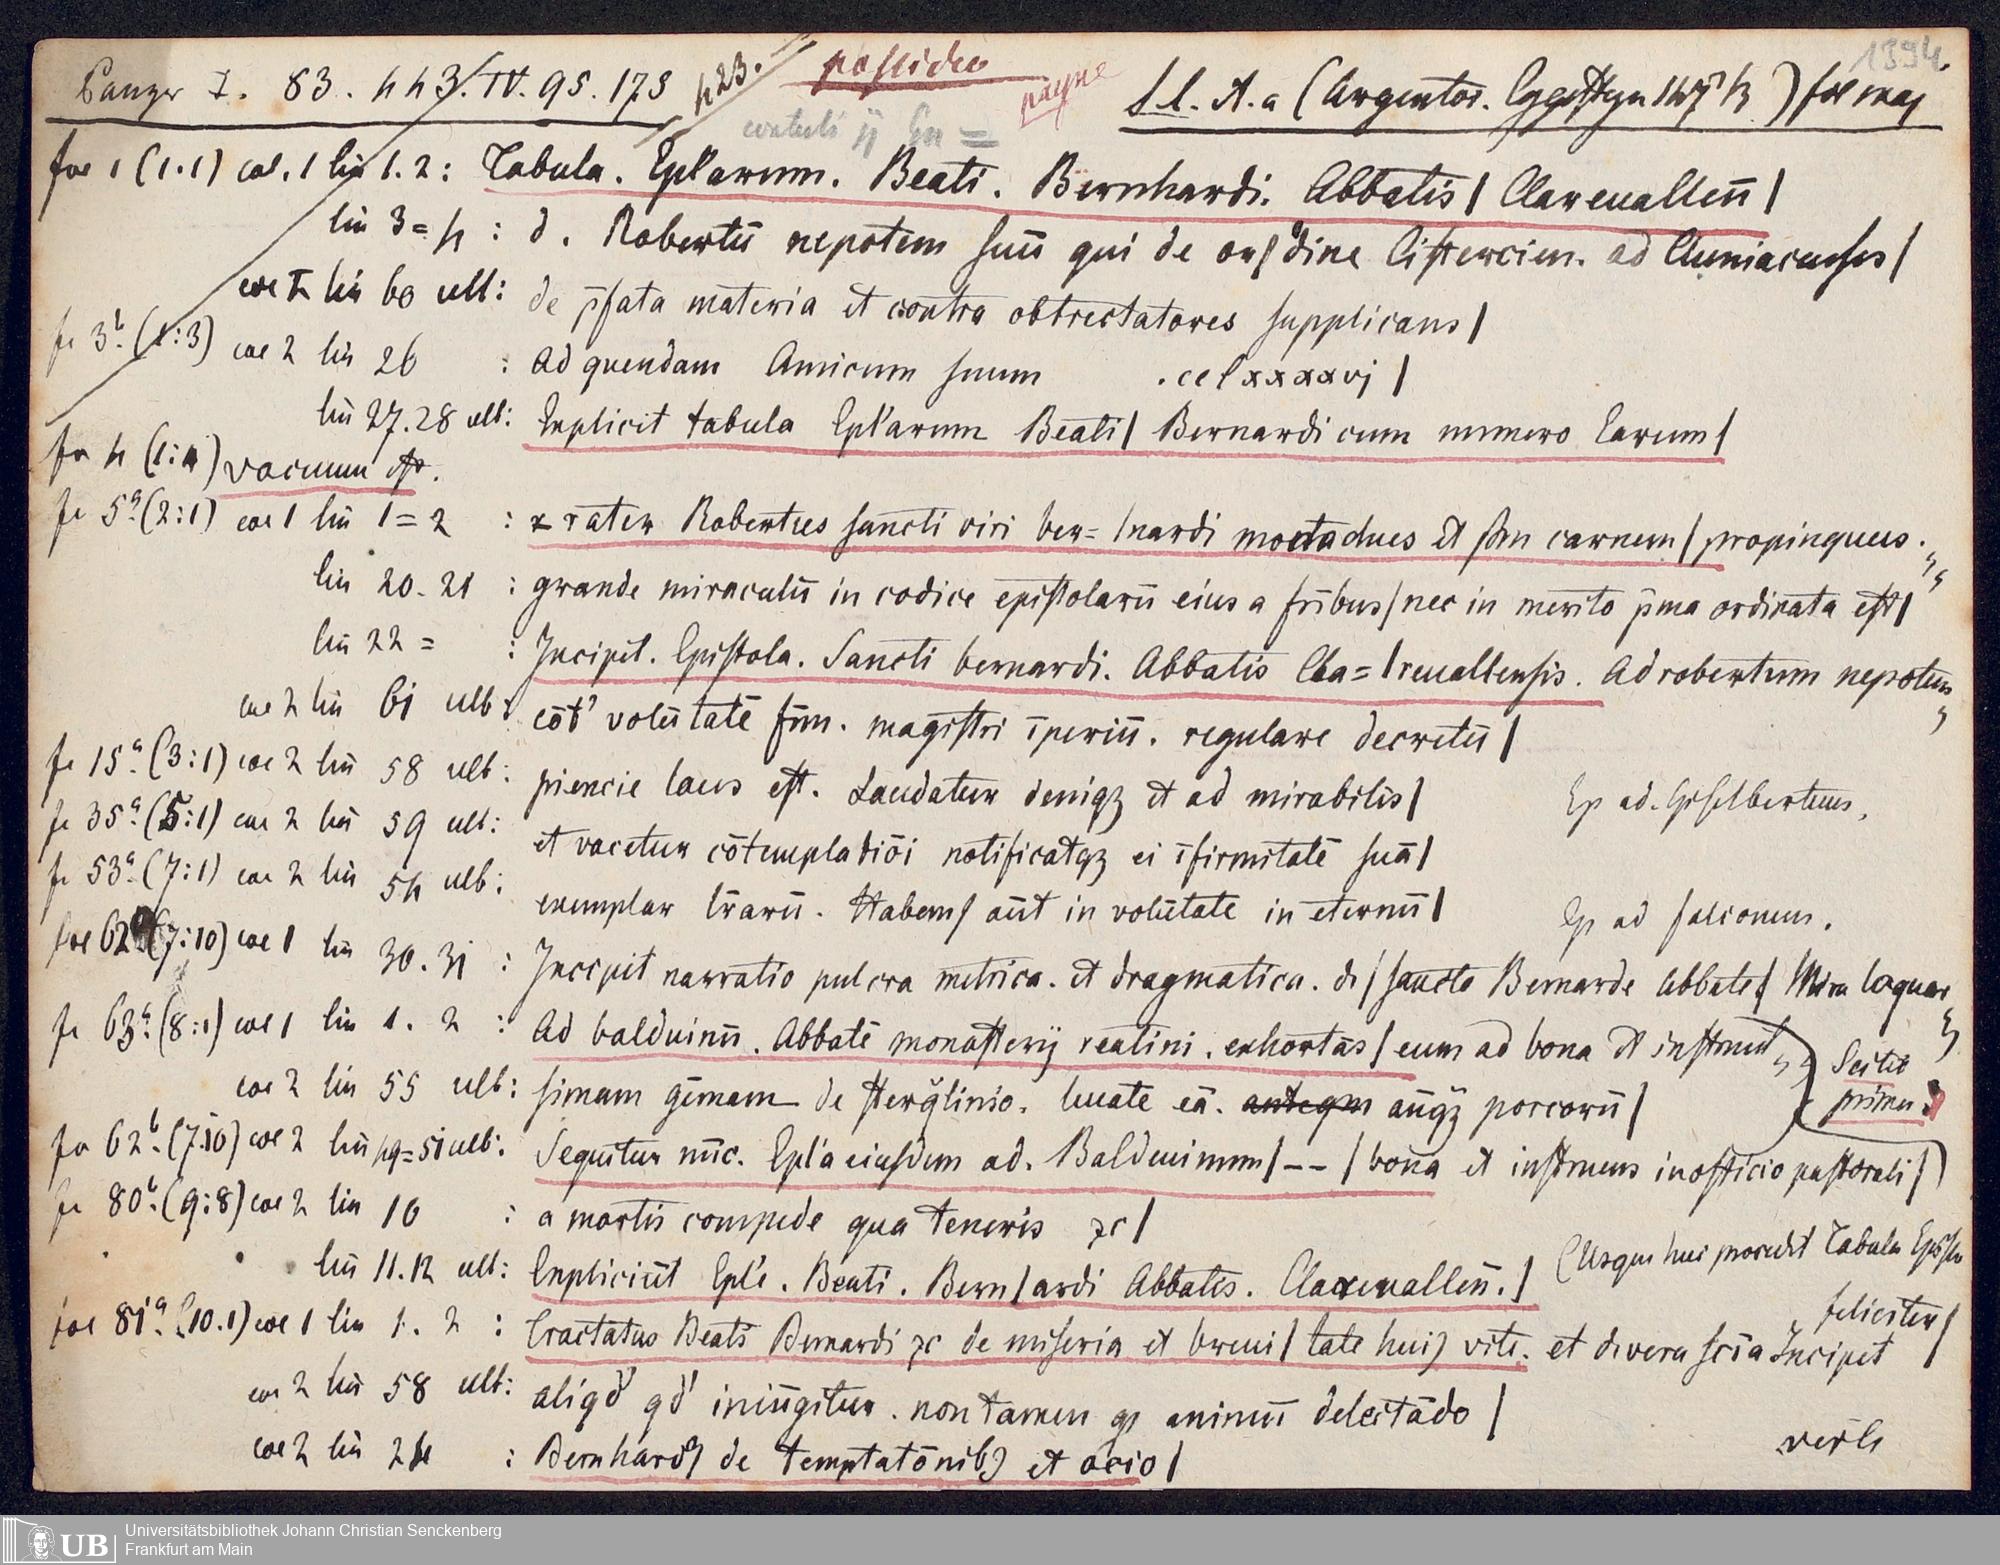 Panzer I. 83. 443. IV. 95. 173
423.
possideo
1394.
s. l. A. a (Argentor. Eggesteyn 147 ) fol maj
fol 1 (1.1) col. 1 lin 1. 2: Tabula. Epl'arum. Beati. Bernhardi. Abbatis | Clareuallen̄ |
lin 3 = 4 : d. Robertū nepotem suū qui de or|dine Cistercien. ad Cluniacenses |
col 2 lin 60 ult: de p̄fata materia et contra obtrectatores supplicans |
fo 3b. (1:3) col 2 lin 26 : Ad quendam Amicum suum .cclxxxxvj |
lin 27. 28 ult: Explicit tabula Epl'arum Beati | Bernardi cum numero Earum |
fo 4 (1:4) vacuum est.
fo 5a. (2:1) col 1 lin 1 = 2 : rater Robertus sancti viri ber= |nardi monachus et scdm carnem | propinquus.
lin 20. 21 : grande miraculū in codice epistolarū eius a fr̄ibus | nec in merito p̄ma ordinata est |
lin 22 = : Incipit. Epistola. Sancti bernardi. Abbatis Cla= | reuallensis. Ad robertum nepotem
col 2 lin 61 ult: cōt' volūtatē frm. magistri īperiū. regulare decretū |
fo 15a. (3:1) col 2 lin 58 ult: piencie laus est. Laudatur deniqz et ad mirabilis | Ep ad. Giselbertum,
fo 35a. (5:1) col 2 lin 59 ult: et vacetur cōtemplatiōi notificatqz ei īfirmitatē suā |
fo 53a. (7:1) col 2 lin 54 ult: exemplar lr̄arū. Habem| aūt in volūtate in eternū | Ep ad falconem.
fol 62a (7:10) col 1 lin 30. 31 : Incipit narratio pulcra metrica. et dragmatica. de | sancto Bernardo Abbate | Mira loquar
fo 63a. (8:1) col 1 lin 1. 2 : Ad balduinū. Abbatē monasterij reatini. exhortās | eum ad bona et instruēt
Scitis primus
col 2 lin 55 ult: simam gēmam de sterq̄linio. leuate eā. anteqm aūqz porcorū |
fo 62b. (7:10) col 2 lin 49=51 ult: Sequitur nūc. Epl'a eiusdem ad. Balduinum | -- | bona et instruens in officio pastorali |
fo 80b. (9:8) col 2 lin 10 : a mortis compede qua teneris zc |
lin 11. 12 ult: Expliciūt Epl'e. Beati. Bern|ardi Abbatis. Clareuallen̄. | (Usque huc procedit Tabula Epistu
fol 81a. (10.1) col 1 lin 1. 2 : Tractatus Beati Bernardi zc de miseria et breui | tate hui9 vite. et de vera scīa Incipit feliciter |
col 2 lin 58 ult: aliqd' qd' iniūgitur. non tamen qz animū delectādo |
verte
col 2 lin 24 : Bernhard9 de temptatōnib9 et ocio |
UB
Universitätsbibliothek Johann Christian Senckenberg
Frankfurt am Main